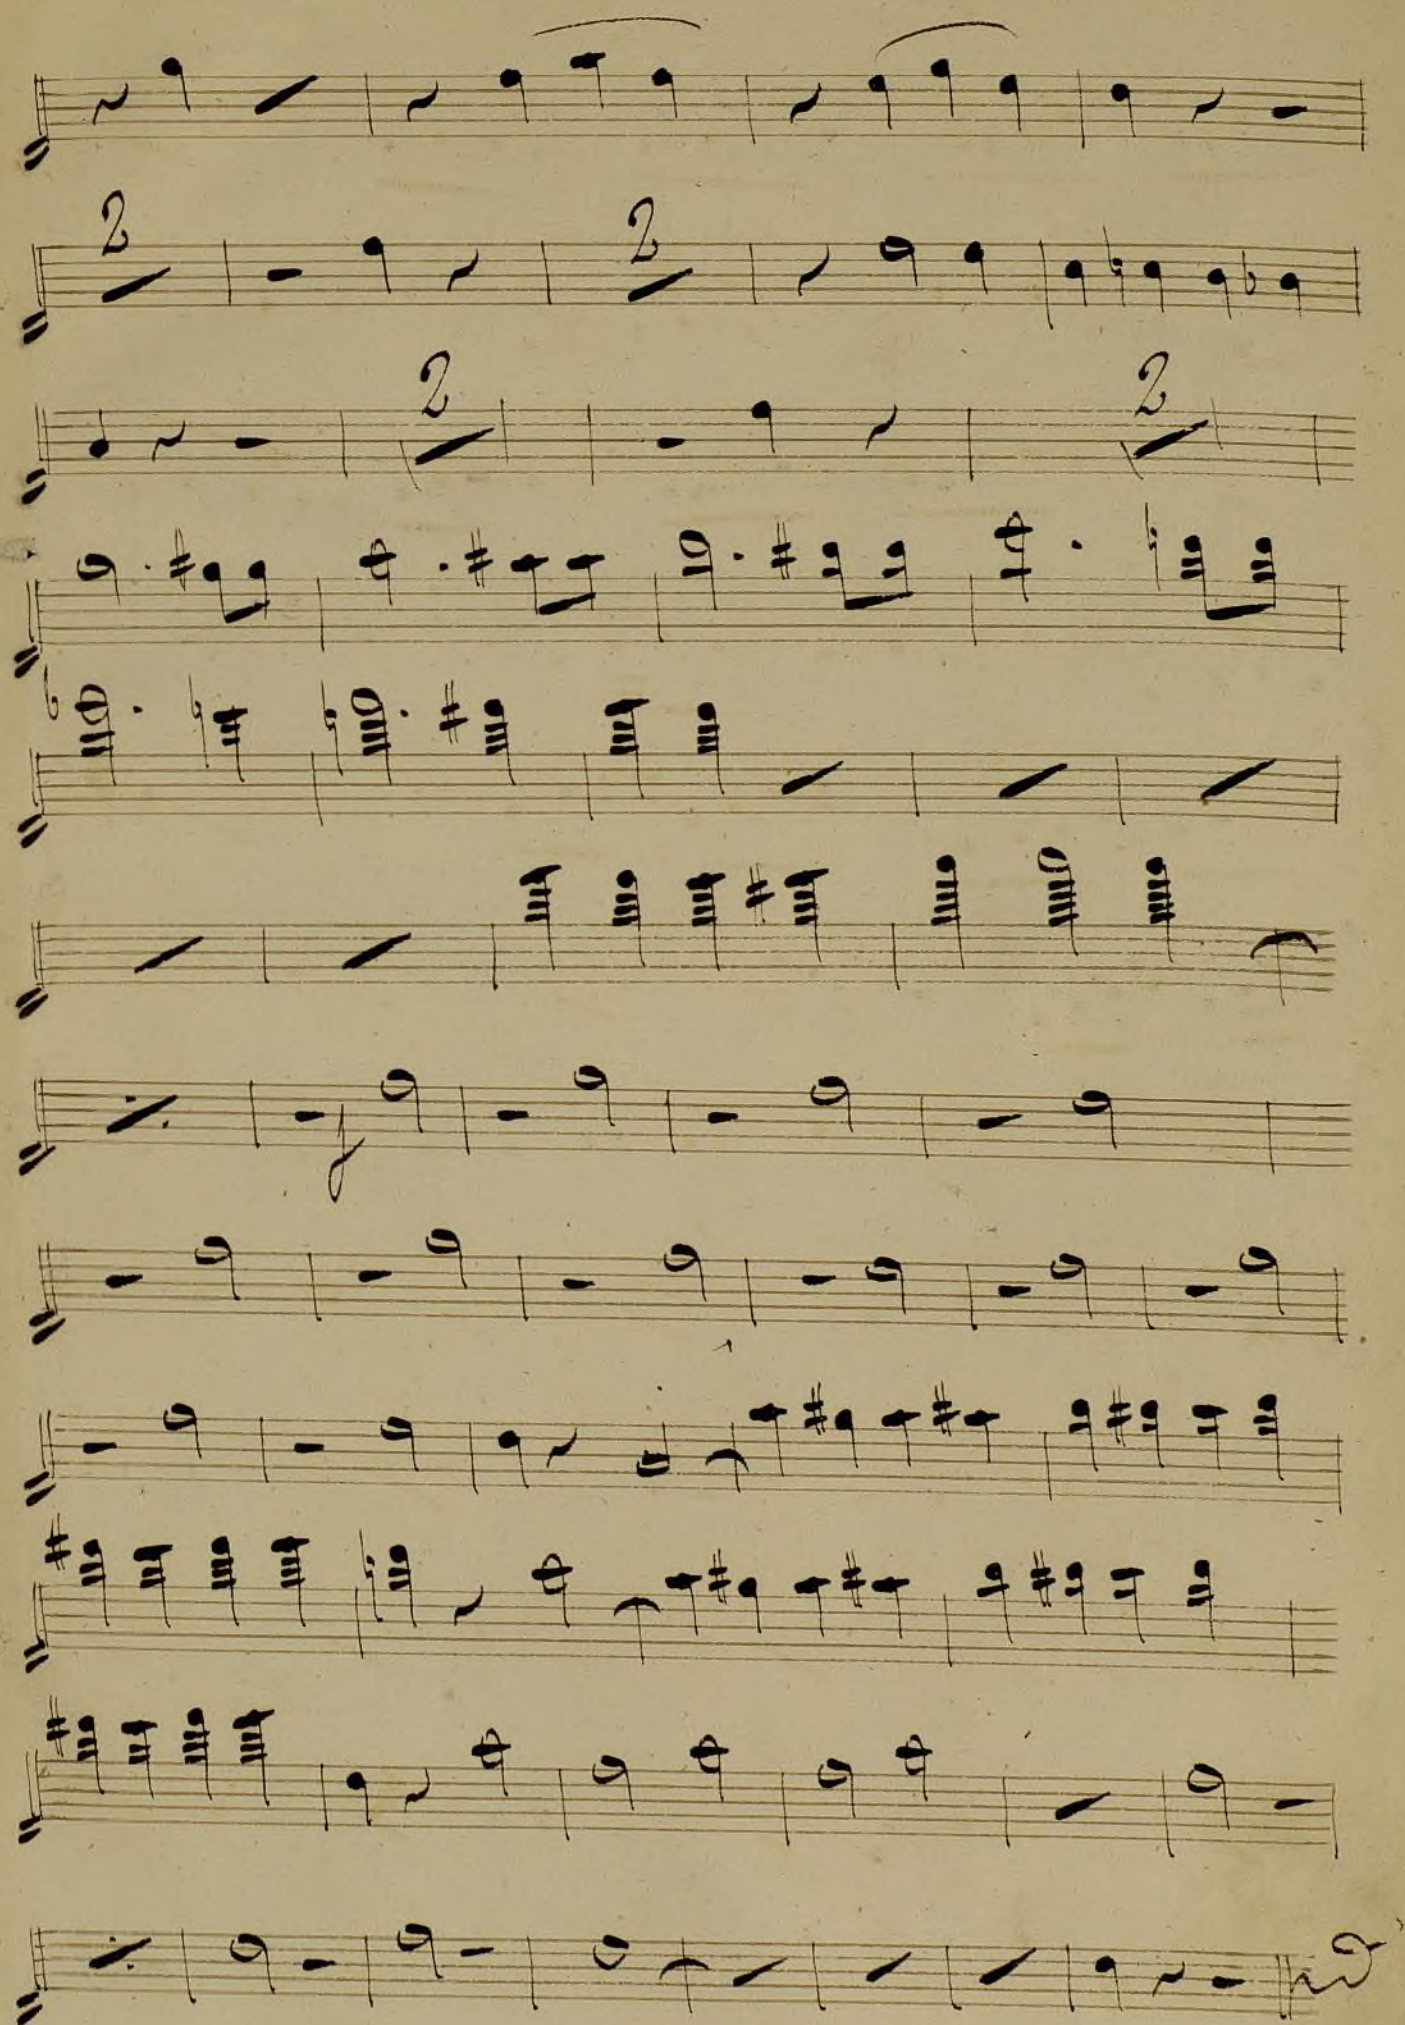 2 2
2 2
f